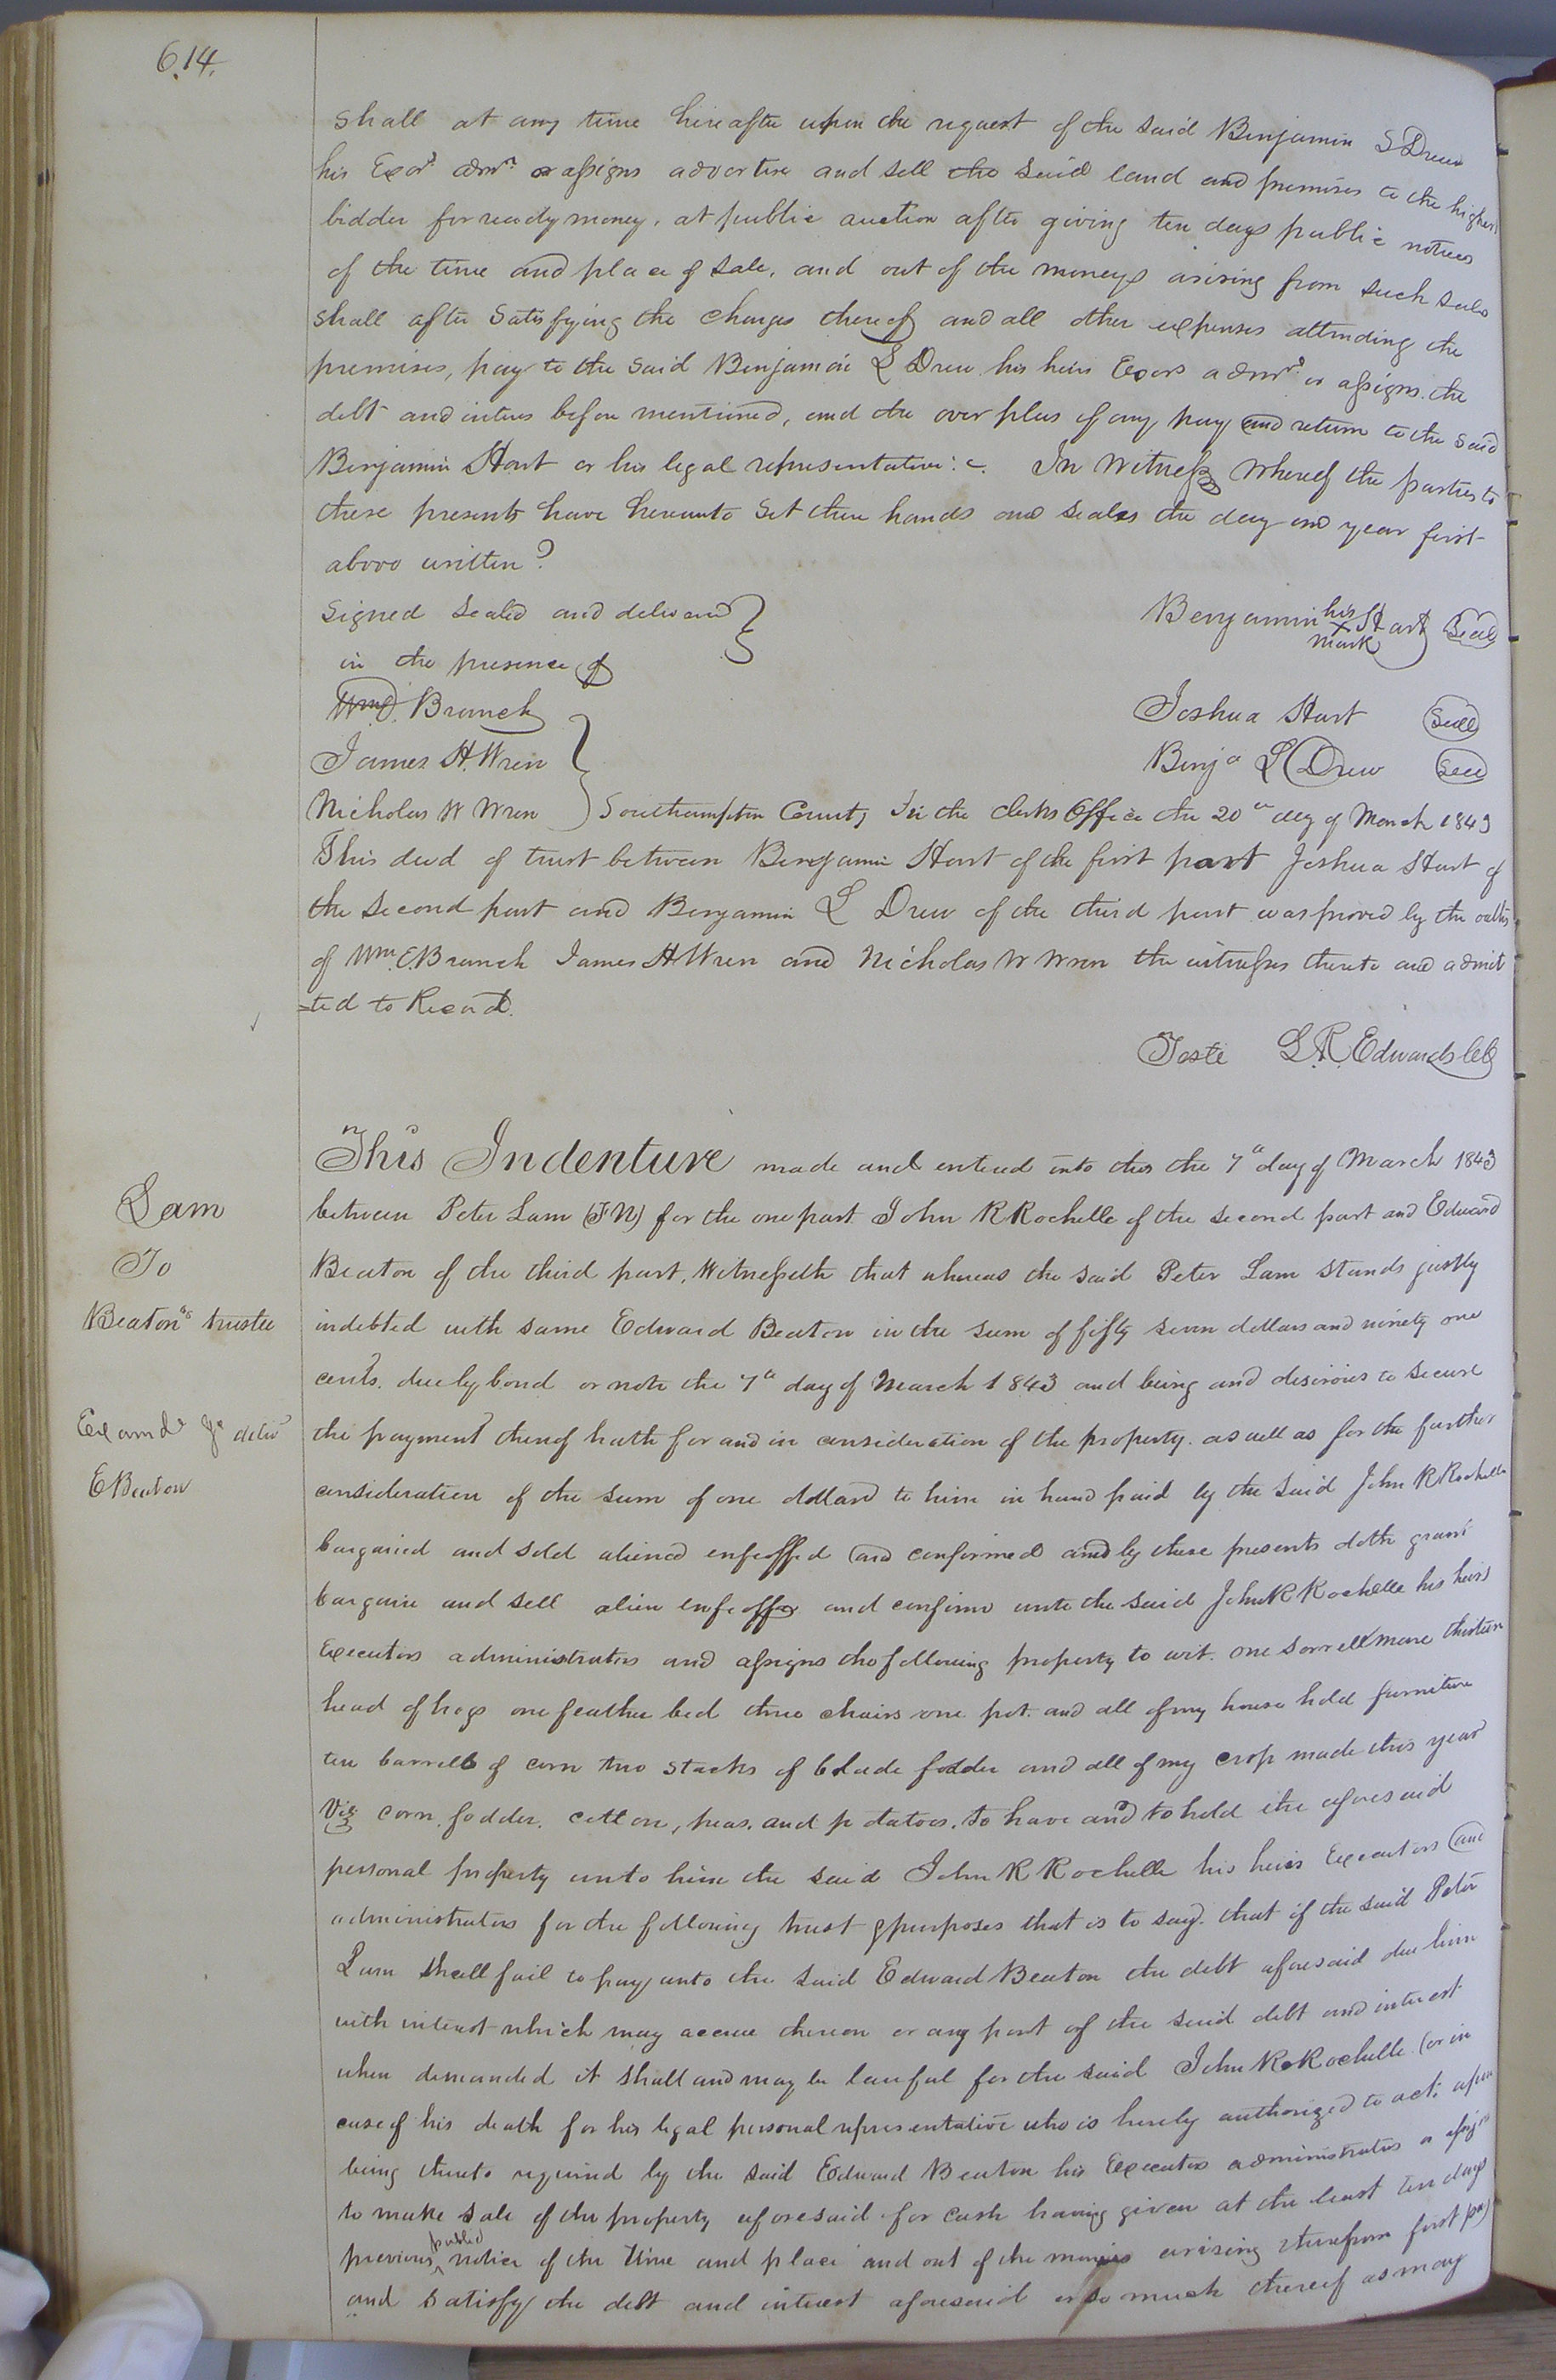 614.
shall at any time hereafter upon the request of the said Benjamin S Drew
his Exors admrs or assigns advertise and sell the said land and premises to the highest
bidder for ready money, at public auction after giving ten days public notices
of the time and place of sale, and out of the moneys arising from such sales
shall after Satisfying the Charges thereof and all other expenses attending the
premises, pay to the said Benjamin L Drew his heirs Exors admrs or assigns the
debt and interes before mentioned, and the over plus if any pay and return to the said
Benjamin Hart or his legal representative:-. In Witness Whereof the parties to
these presents have hereunto Set there hands and seales the day and year first
above written?
Signed Sealed and delivered
in the presence of
Benjamin his X mark Hart Seal
Wm E. Branch
Joshua Hart Seal
James H. Wren
Benja L Drew Seal
Nicholas W Wren } Southampton County In the Clerks Office the 20th day of March 1843
This deed of trust between Benjamin Hart of the first part Joshua Hart of
the Second part and Benjamin L Drew of the third part was proved by the oaths
of Wm. E. Branch James H Wren and Nicholas W Wren the witnesses thereto and admit
=ted to Record.
Teste L. R. Edwards Clk
Lam
To
Beatons trustee
Examd & deliv
E Beaton
This Indenture made and entered into this the 7th day of March 1843
between Peter Lam (FN) for the one part John R Rochelle of the second part and Edward
Beaton of the third part, Witnesseth that whereas the said Peter Lam Stands justly
indebted with same Edward Beaton in the sum of fifty seven dollars and ninety one
cents. due by bond or note the 7th day of March 1843 and being and desirous to secure
the payment thereof hath for and in consideration of the property. as well as for the further
consideration of the sum of one dollard to him in hand paid by the said John R Rochelle
bargained and sold aliened enfeoffed and confirmed and by these presents doth grant
bargain and sell alien enfeoff and confirm unto the said John R Rochelle his heirs
Executors administrators and assigns the following property to wit. one sorrell mare thirteen
head of hogs one feather bed three chairs one pot. and all of my house hold furniture
ten barrells of corn two stacks of blade fodder and all of my crop made this year
Viz corn, fodder, cotton, peas, and potatoes, to have and to hold the aforesaid
personal property unto him the said John R Rochelle his heirs Executors and
administrators for the following trust & purposes that is to say. that if the said Peter
Lam shall fail to pay unto the said Edward Beaton the debt aforesaid due him
with interest which may accrue thereon or any part of the said debt and interest
when demanded it shall and may be lawful for the said John R Rochelle (or in
case of his death for his legal personal representative who is hereby authorized to act, upon
being thereto required by the said Edward Beaton his Executors administrators or assigns
to make sale of the property aforesaid for cash having given at the least ten days
previous public notice of the time and place and out of the monies arising therefrom first pay
and Satisfy the debt and interest aforesaid or so much thereof as may